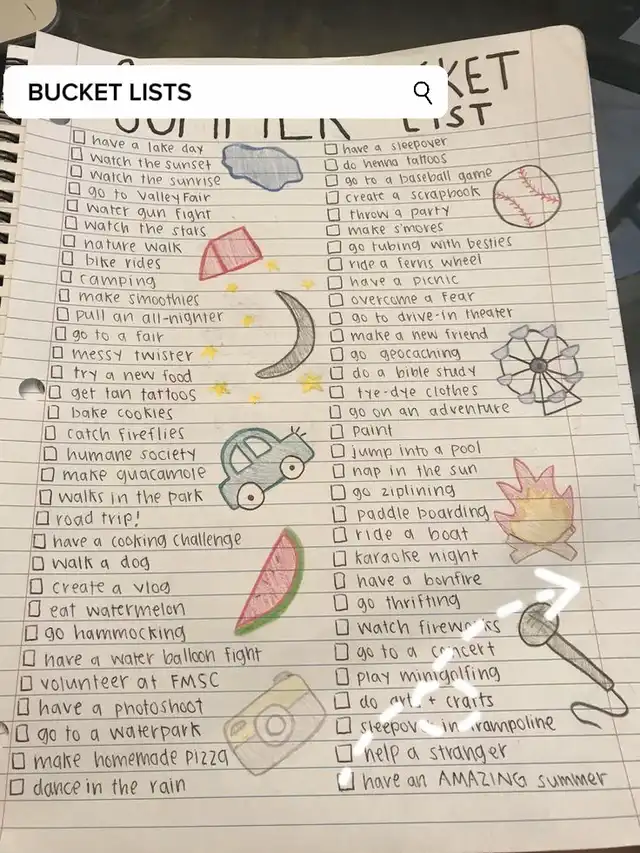 BUCKET LISTS
SUMMER
LIST
have a lake day
watch the sunset
watch the sunrise
go to Valleyfair
water gun fight
watch the stars
nature walk
bike rides
camping
make smoothies
pull an all-nighter
go to a fair
messy twister
try a new food
get tan tattoos
bake cookies
catch fireflies
humane society
make guacamole
walks in the park
road trip!
have a cooking challenge
walk a dog
create a vlog
eat watermelon
go hammocking
have a water balloon fight
volunteer at FMSC
have a photoshoot
go to a waterpark
make homemade pizza
dance in the rain
have a sleepover
do henna tattoos
go to a baseball game
create a scrapbook
throw a party
make s'mores
go tubing with besties
ride a ferris wheel
have a picnic
overcome a fear
go to drive-in theater
make a new friend
go geocaching
do a bible study
tye-dye clothes
go on an adventure
paint
jump into a pool
nap in the sun
go ziplining
paddle boarding
ride a boat
karaoke night
have a bonfire
go thrifting
watch fireworks
go to a concert
play minigolfing
do arts + crafts
sleepover in trampoline
help a stranger
have an AMAZING summer